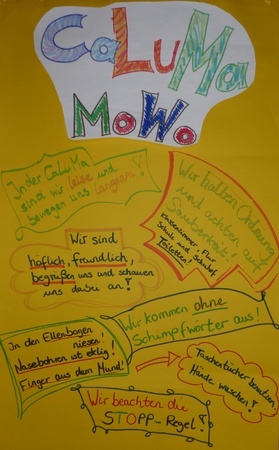 CaLuMa
MoWo
In der CaLuMa
sind wir leise und
bewegen uns langsam!
Wir halten Ordnung
und achten auf
Sauberkeit!
Klassenzimmer, Flur
Schule und Schulhof
Toiletten
Wir sind
höflich, freundlich,
begrüßen uns und schauen
uns dabei an!
Wir kommen ohne
Schimpfwörter aus!
In den Ellenbogen
niesen!
Nasebohren ist eklig!
Finger aus dem Mund!
Taschentücher benutzen,
Hände waschen!
Wir beachten die
STOPP-Regel!